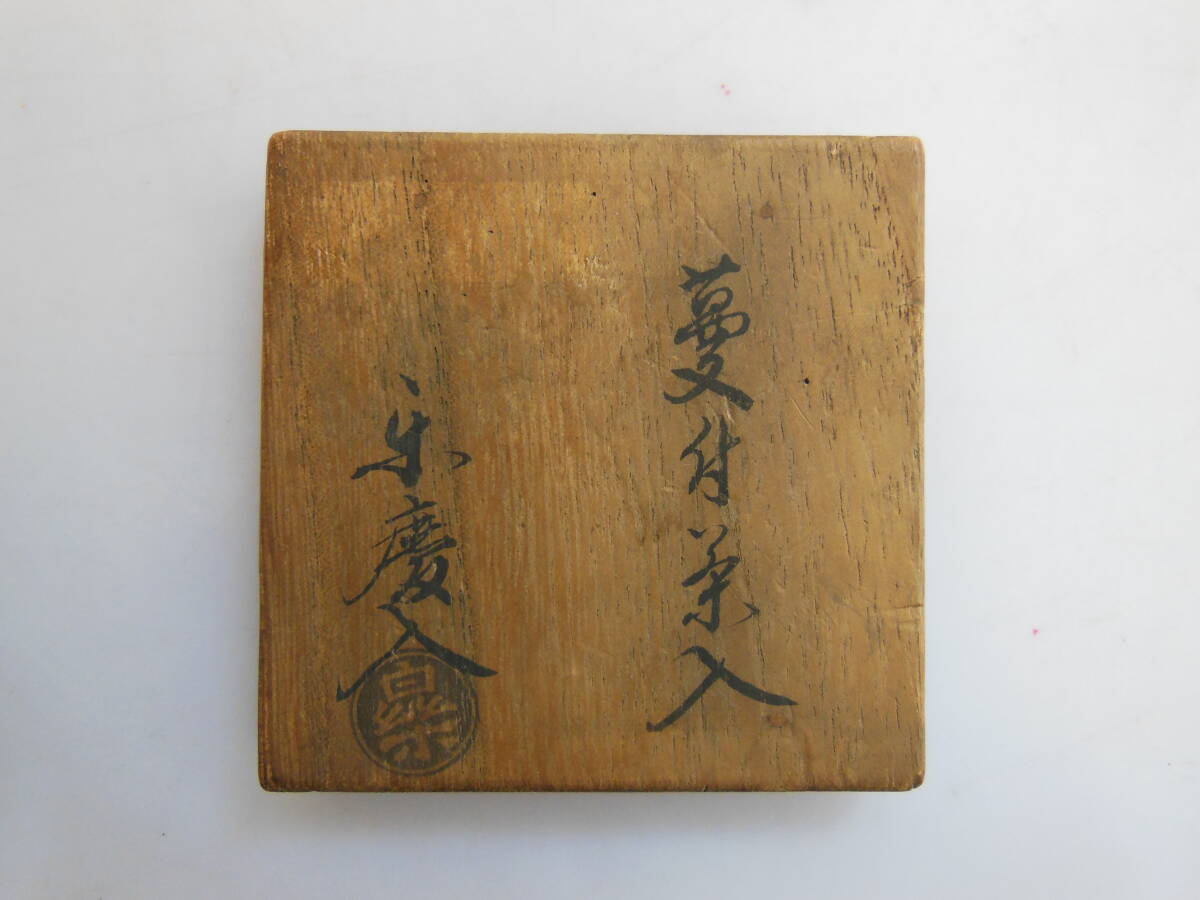 蔓付茶入
楽慶入
樂